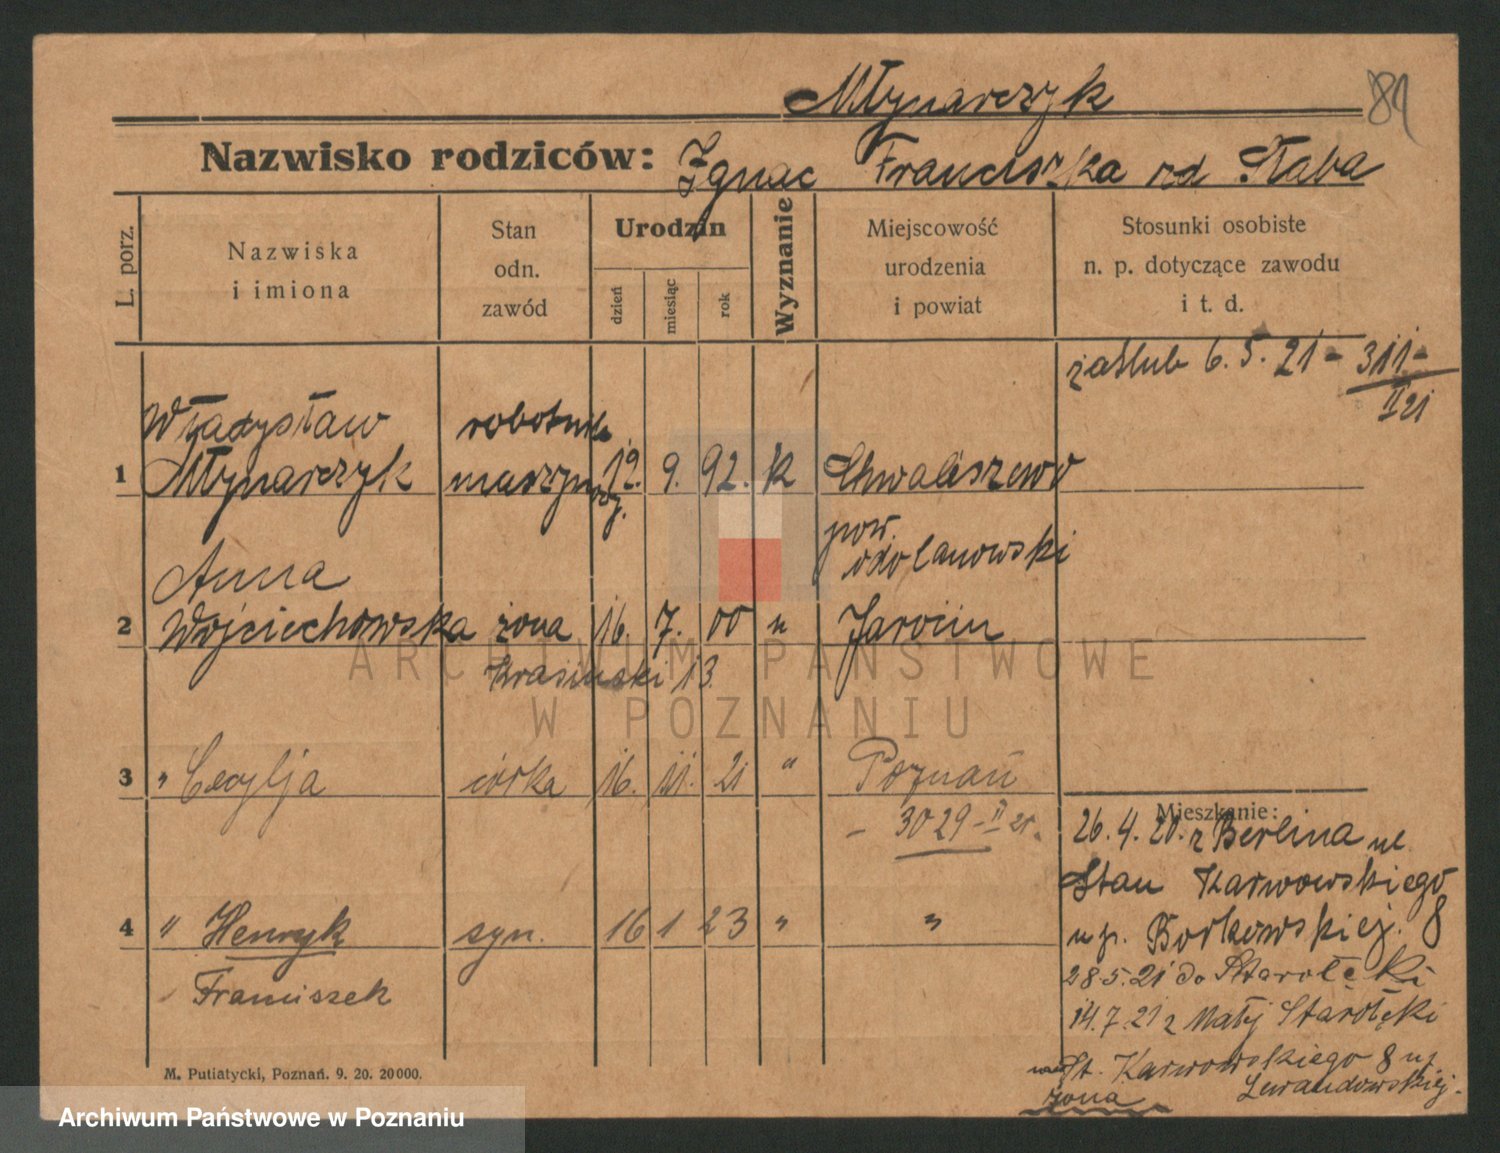 Młynarczyk 81
Nazwisko rodziców: Ignac Franciszka rd Staba
L. porz.
Nazwiska
i imiona
Stan
odn.
zawód
Urodzin
dzień
miesiąc
rok
Wyznanie
Miejscowość
urodzenia
i powiat
Stosunki osobiste
n. p. dotyczące zawodu
i t. d.
zaślub 6. 5. 21 - 311 -
II 21
Władysław robotnik
1 Młynarczyk maszynowy. 19. 9. 92. k Chwaliszewo
pow.
odolanowski
Anna
2 Wojciechowska żona 16. 7. 00 " Jarocin
Krasiński 13
3 " Cecylja córka 16. 11. 21 " Poznań
- 3029 - II 21.
4 " Henryk syn. 16 1 23 " "
Franciszek
Mieszkanie:
26. 4. 20. z Berlina ul.
Stan Karwowskiego
u p. Borkowskiej. 8
28.5.21 do Starołęki
14.7.21 z Małej Starołęki
St. Karwowskiego 8 u p.
Lewandowskiej.
żona
M. Putiatycki, Poznań. 9. 20. 20000.
ARCHIWUM PAŃSTWOWE
W POZNANIU
Archiwum Państwowe w Poznaniu